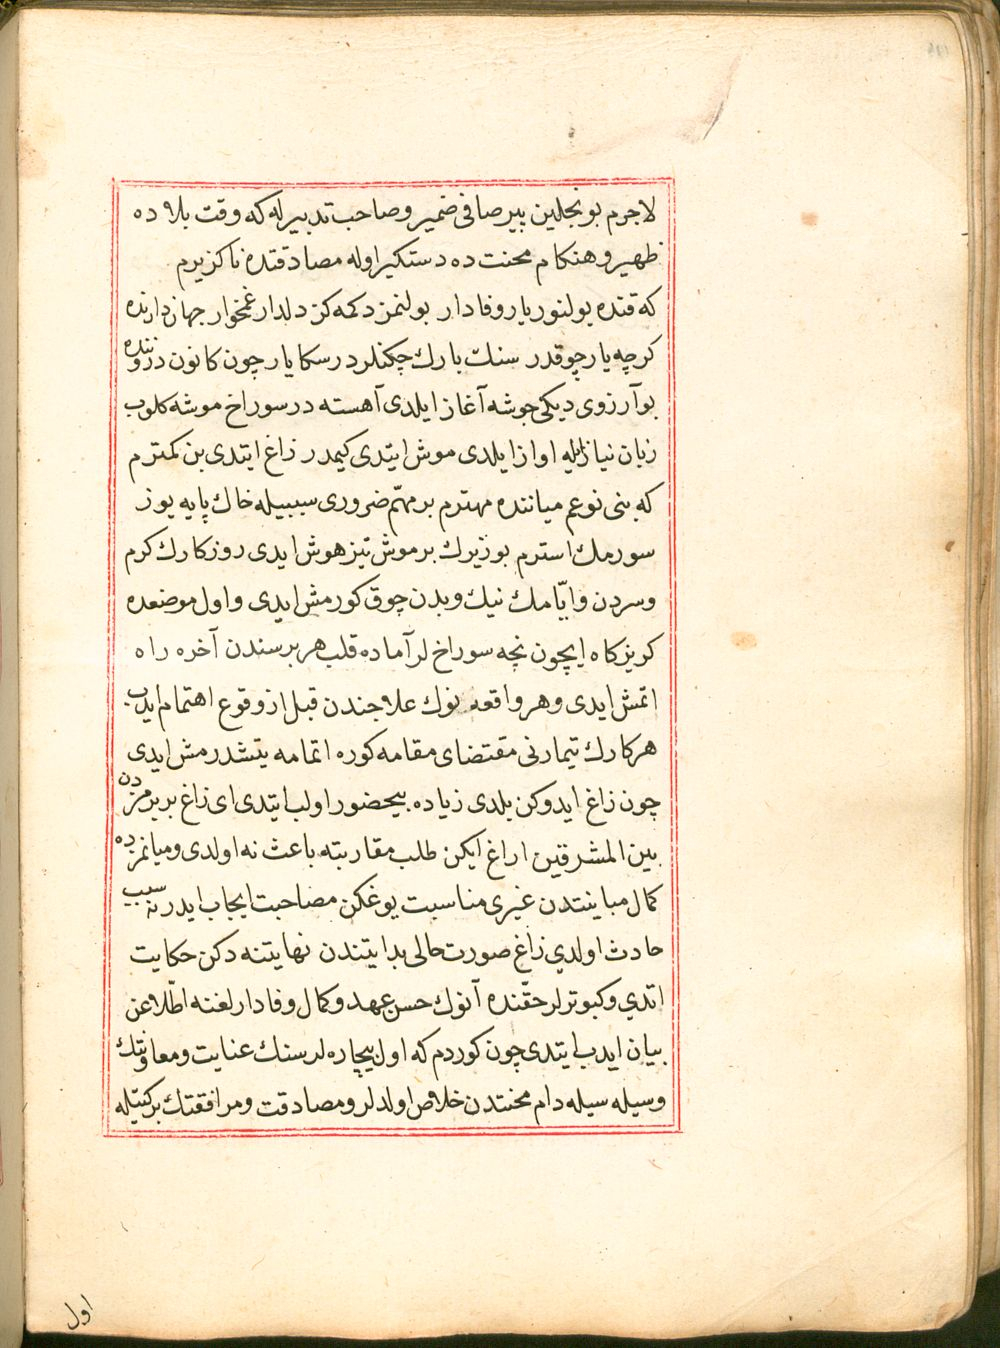 لاجرم بونجلین بیر صافی ضمیر و صاحب تدبیر له که وقت بلاده
ظهیر و هنکام محنت ده دستکیر اوله مصادقتده ناکزیرم
که قنده بولنور یار وفادار بولنمز دکمه کز دلدار غمخوار جهان دارنده
کرچه یار چوقدر سنك بارك چکنلر در سکا یار چون کانون درونده
بو آرزوی دیکی جوشه آغاز ایلدی آهسته در سوراخ موشه کلوب
زبان نیاز ایله اواز ایلدی موش ایتدی کیمدر زاغ ایتدی بن کمترم
که بنی نوعم میاننده مهترم بر مهمّ ضروری سببیله خاك پایه یوز
سورمك استرم بو زیرك بر موش تیز هوش ایدی روزکارك کرم
و سردن و ایّامك نیك و بدن چوق کورمش ایدی و اول موضعده
کریزکاه ایچون نچه سوراخ لر آماده قلب هر برسندن آخره راه
اتمش ایدی و هر واقعه نوك علاجندن قبل از وقوع اهتمام ایدب
هر کارك تیمارنی مقتضای مقامه کوره اتمامه یتشدرمش ایدی
چون زاغ ایدوکن بلدی زیاده بیحضور اولب ایتدی ای زاغ بربرمزدن
بین المشرقین اراغ ایکن طلب مقاربته باعث نه اولدی و میانمزده
کمال مباینتدن غیری مناسبت یوغکن مصاحبت ایجاب ایدر نه سبب
حادث اولدی زاغ صورت حالی بدایتندن نهایتنه دکن حکایت
اتدی و کبوترلر حقنده آنوك حسن عهد و کمال وفادارلغنه اطّلاعن
بیان ایدب ایتدی چون کوردم که اول بیچاره لر سنك عنایت و معاونتك
وسیله سیله دام محنتدن خلاص اولدلر و مصادقت و مرافقتك برکتیله
اول